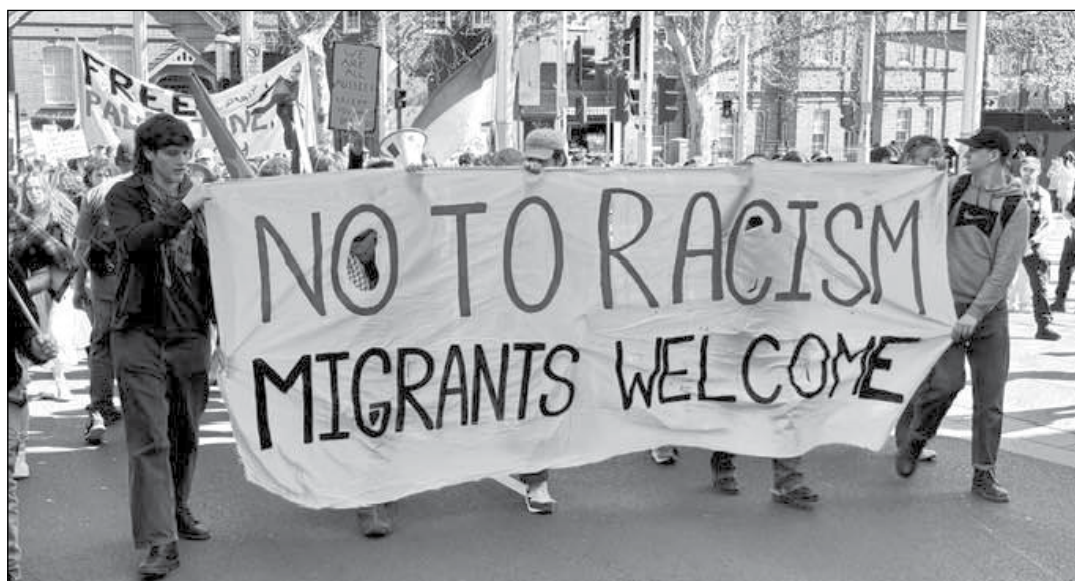 FREE
ARE
ALL
NO TO RACISM
MIGRANTS WELCOME